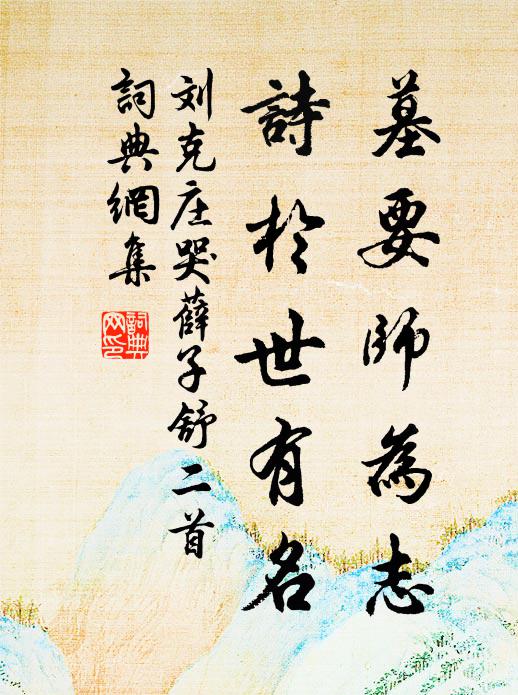 墓要師為志
詩於世有名
刘克庄哭薛子舒二首
詞典網集
詞典网印